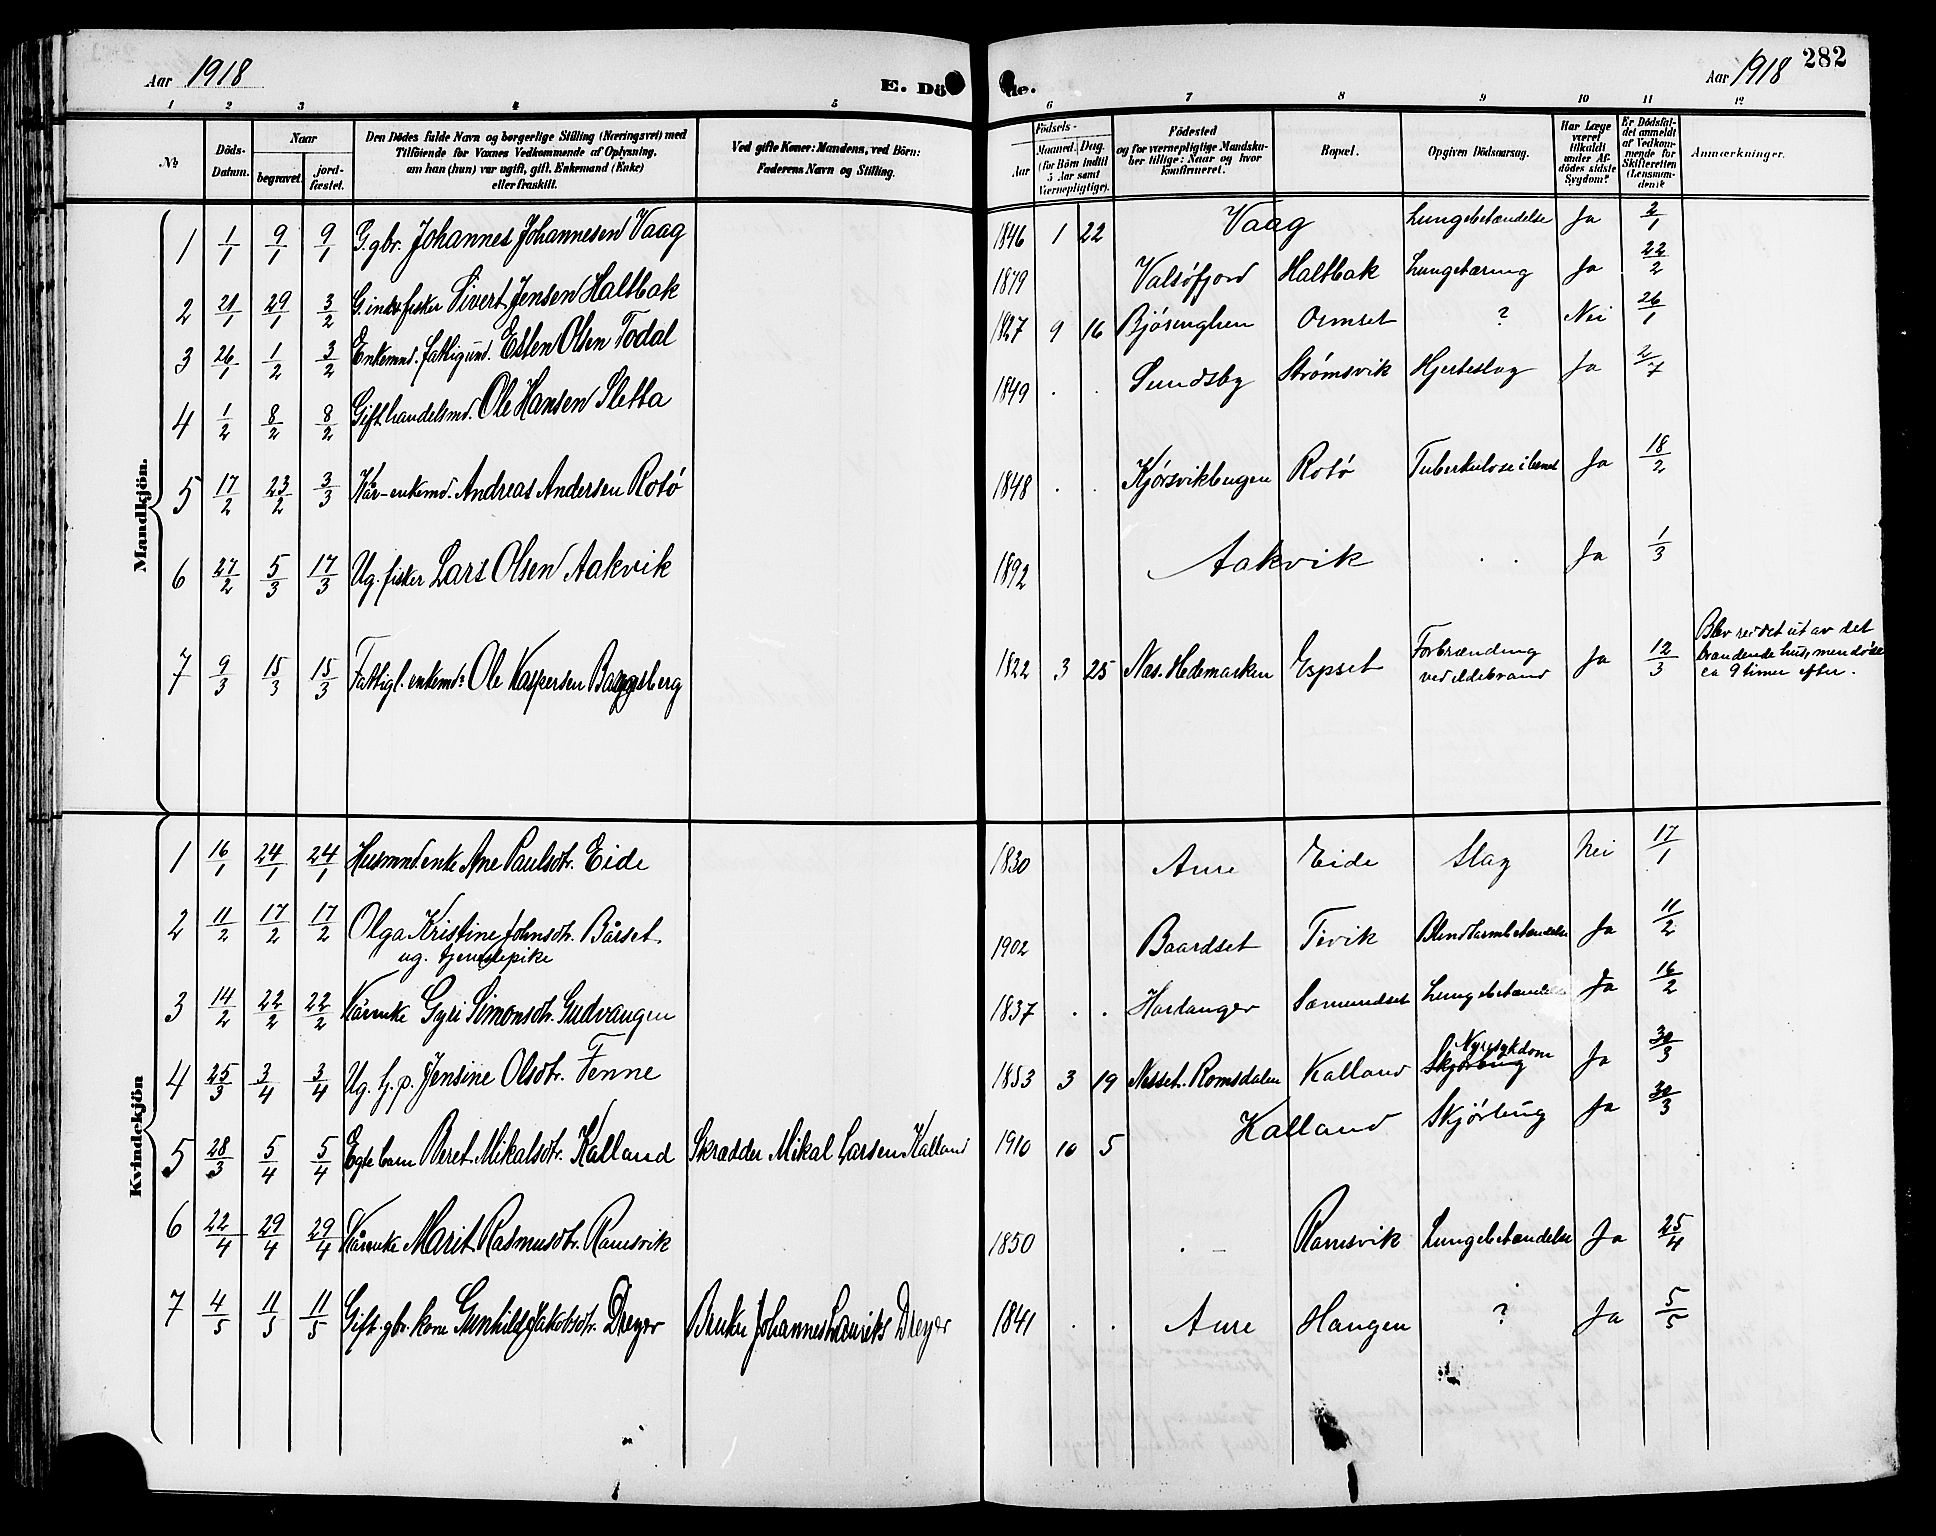 Aar 1918
E. Dö de.
Aar 1918
282
1 2 3 4 5 6 7 8 9 10 11 12
No
Döds-Datum.
Naar
begravet.
jord-fæstet.
Den Dödes fulde Navn og borgerlige Stilling (Næringsvei) med
Tilföiende for Voxnes Vedkommende af Oplysning,
om han (hun) var ugift, gift, Enkemand (Enke)
eller fraskilt.
Ved gifte Koner: Mandens, ved Börn:
Faderens Navn og Stilling.
Födsels-
Aar
Maaned. Dag.
(for Börn indtil
5 Aar samt
Værnepligtige).
Födested
og for værnepligtige Mandsku-
ber tillige: Naar og hvor
konfirmeret.
Bopæl.
Opgiven Dödsaarsag.
Har Læge
været
tilkaldt
under Af-
dödes sidste
Sygdom?
Er Dödsfal-
det anmeldt
af Vedkom-
mende for
Skifteretten
(Lensman-
den)?
Anmærkninger.
Mandkjön.
1 1/1 9/1 9/1 G. gbr. Johannes Johannesen Vaag 1846 1 22 Vaag Lungebetændelse Ja 2/1
2 21/1 29/1 3/2 G. inds. fisker Sivert Jensen Haltbak 1879 Valsøfjord Haltbak Lungetæring Ja 22/2
3 26/1 1/2 3/2 Enkemnd. fattigund. Esten Olsen Todal 1827 9 16 Bjørenghen Ormset ? Nei 26/1
4 1/2 8/2 8/2 Gift handelsmd. Ole Hansen Sletta 1849 . . Sundsby Strømsvik Hjerteslag Ja 2/7
5 17/2 23/2 3/3 Kår-enkemd. Andreas Andersen Rotø 1848 . . Kjørsvikbugen Rotø Tuberkulose i benet Ja 18/2
6 27/2 5/3 17/3 Ug. fisker Lars Olsen Aakvik 1892 Aakvik . . Ja 1/3
7 9/3 15/3 15/3 Fattigl. enkemd. Ole Kaspersen Baggsberg 1822 3 25 Næs. Hedemarken Espset Forbrænding ved ildebrand Ja 12/3 Blev reddet ut av det
brændende hus, men døde
ca 9 timer efter.
Kvindekjön
1 16/1 24/1 24/1 Husmnd enke Ane Paulsdtr. Eide 1830 Aure Eide Slag Nei 17/1
2 11/2 17/2 17/2 Olga Kristine Johnsdtr. Bårset 1902 Baardset Tevik Blindtarmbetændelse Ja 11/2
ug. tjenestepike
3 14/2 22/2 22/2 Kårenke Gyri Simonsdtr. Gudvangen 1837 . . Hardanger Sæmundset Lungebetændelse Ja 16/2
4 25/3 3/4 3/4 Ug. G. p. Jensine Olsdtr. Fenne 1853 3 19 Nesset. Romsdalen Kalland Skjørbug Nyresykdom Ja 30/3
5 28/3 5/4 5/4 Egte barn Beret Mikalsdtr. Kalland Skrædder Mikal Larsen Kalland 1910 10 5 Kalland Skjørbug Ja 30/3
6 22/4 29/4 29/4 Kårenke Marit Rasmusdtr. Ramsvik 1850 . - Ramsvik Lungebetændelse Ja 25/4
7 4/5 11/5 11/5 Gift. gbr. kone Gunhild Jakobsdtr. Dreyer Bruker Johannes Lauriks Dreyer 1841 . . Aure Haugen ? Ja 5/5